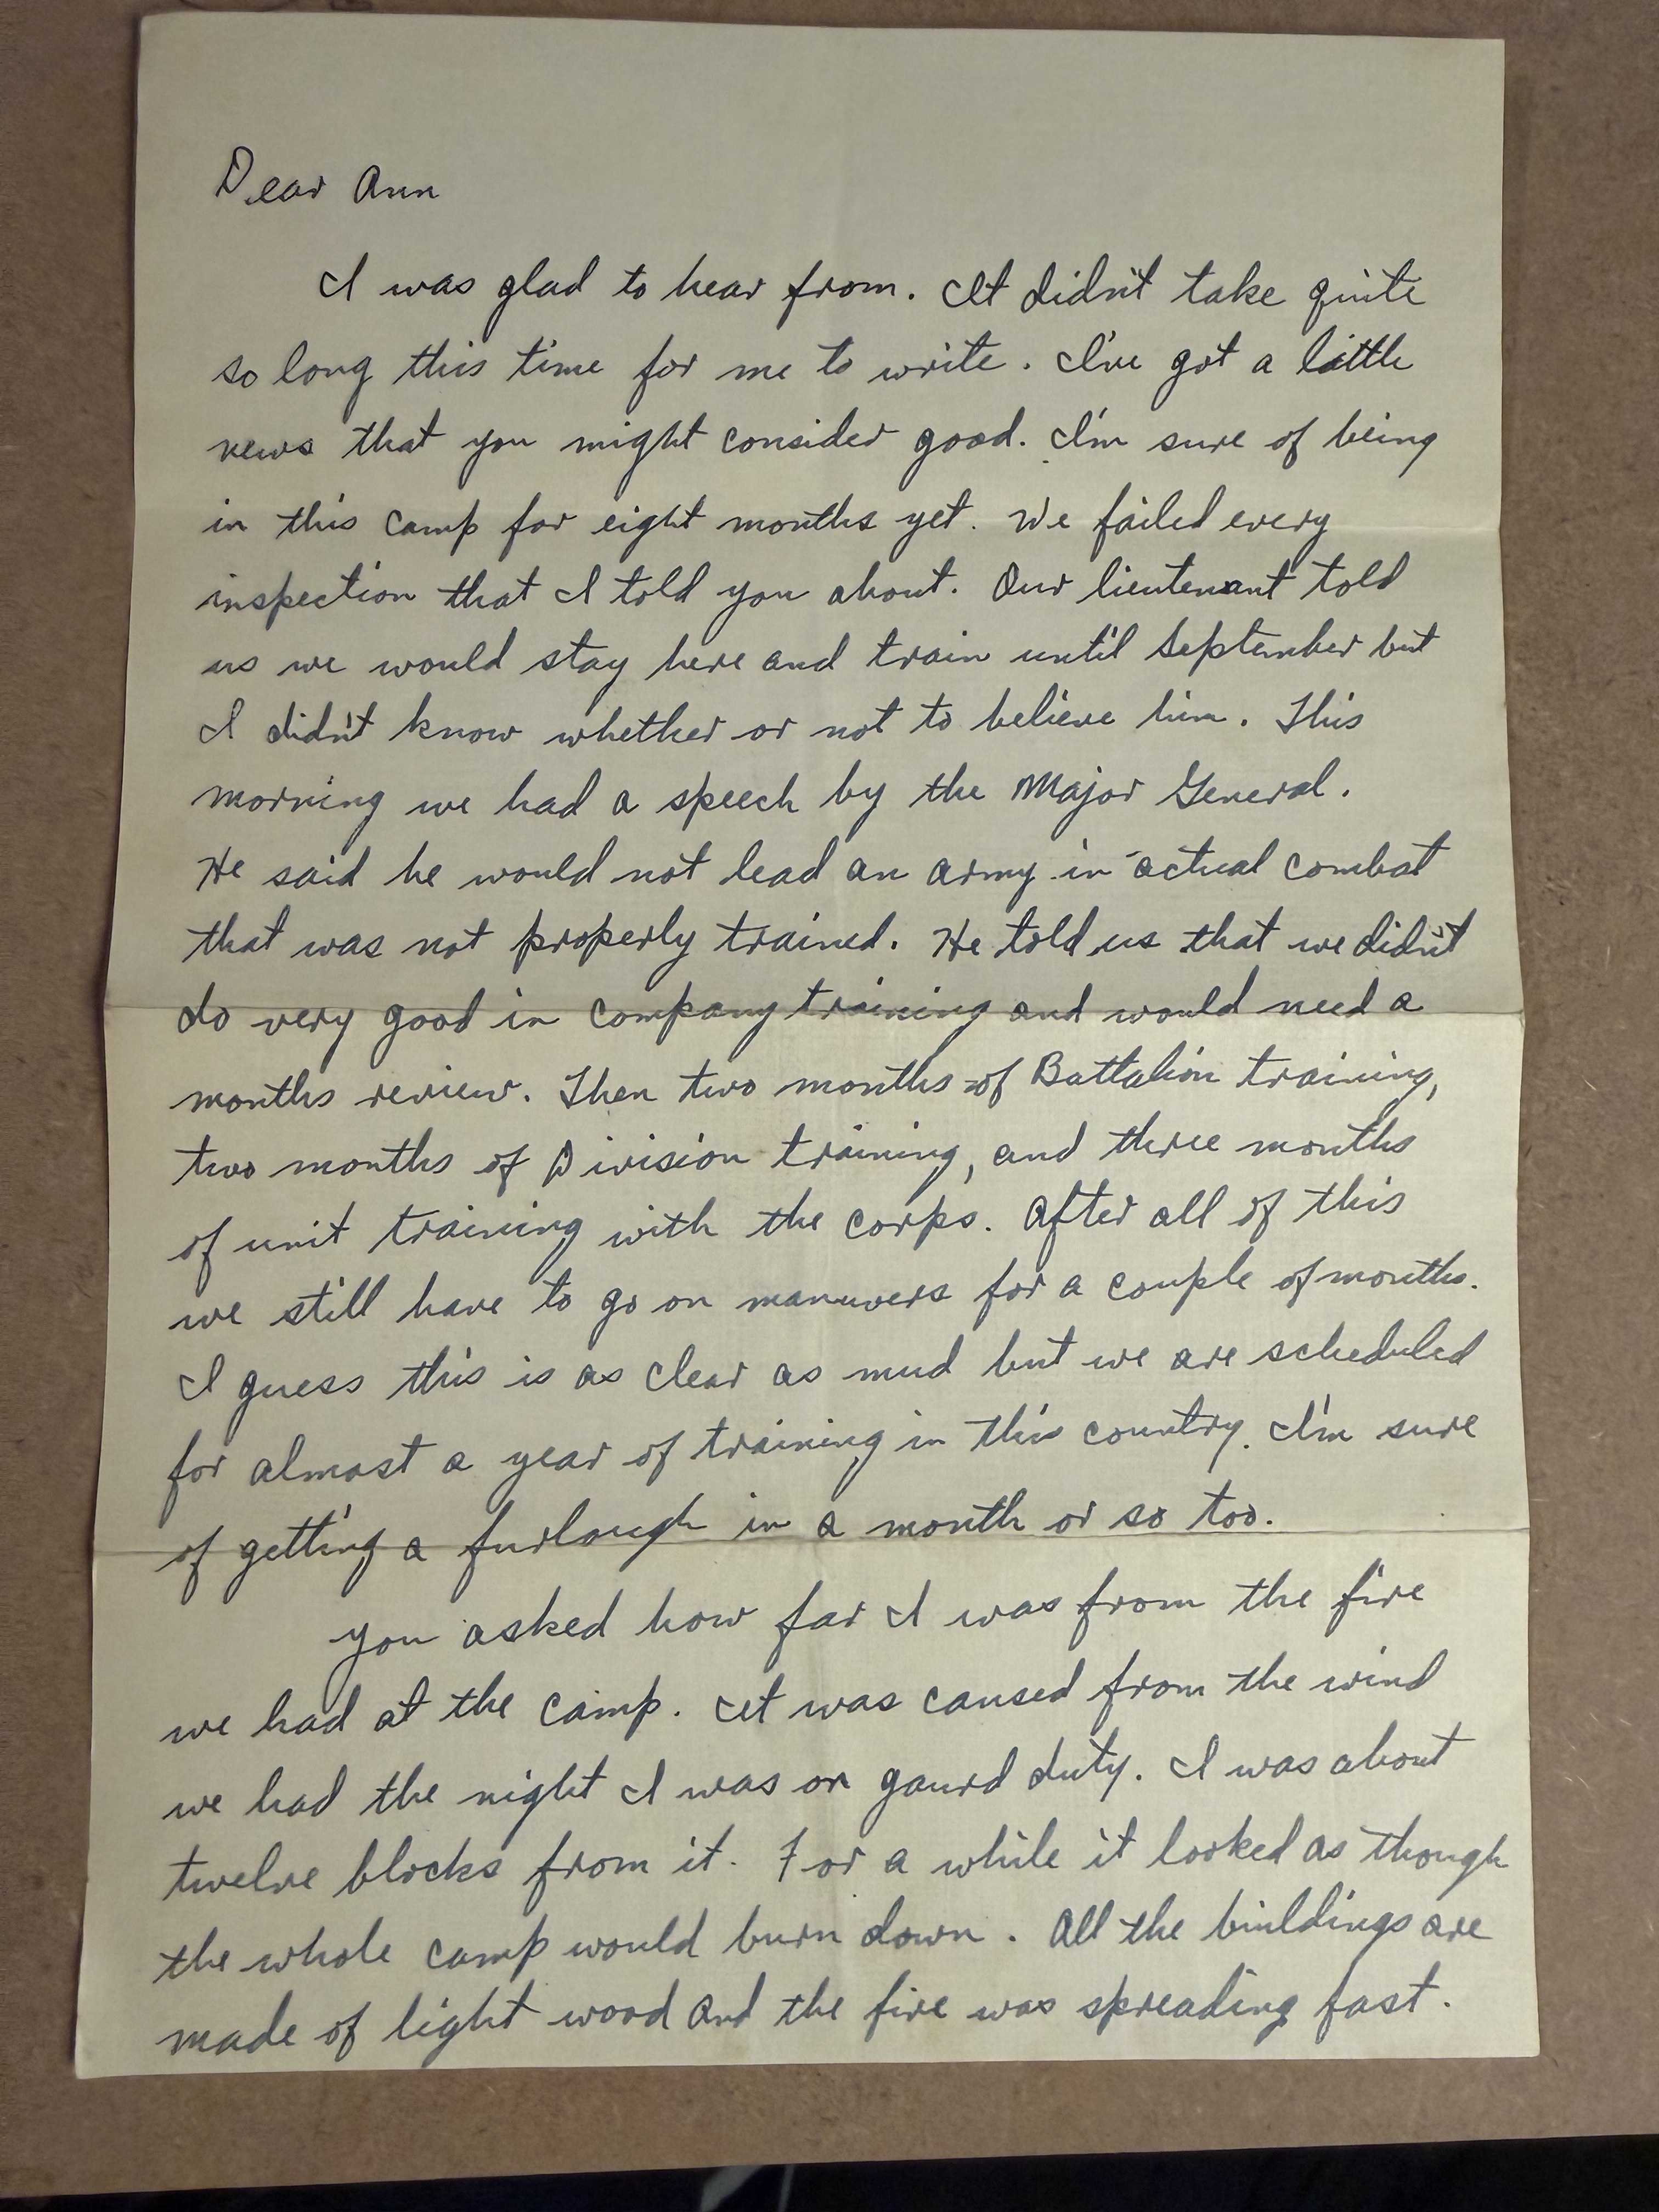 Dear Ann
I was glad to hear from. It didn't take quite
so long this time for me to write. I've got a little
news that you might consider good. I'm sure of being
in this camp for eight months yet. We failed every
inspection that I told you about. Our lieutenant told
us we would stay here and train until September but
I didn't know whether or not to believe him. This
morning we had a speech by the Major General.
He said he would not lead an army in actual combat
that was not properly trained. He told us that we didn't
do very good in company training and would need a
months review. Then two months of Battalion training,
two months of Division training, and three months
of unit training with the corps. After all of this
we still have to go on manuvers for a couple of months.
I guess this is as clear as mud but we are scheduled
for almost a year of training in this country. I'm sure
of getting a furlough in a month or so too.
You asked how far I was from the fire
we had at the camp. It was caused from the wind
we had the night I was on gaurd duty. I was about
twelve blocks from it. For a while it looked as though
the whole camp would burn down. All the buildings are
made of light wood and the fire was spreading fast.